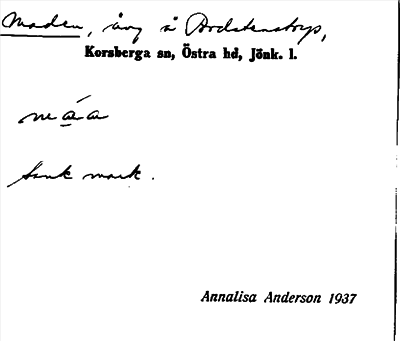 Maden, äng å Bodatenstorp,
Korsberga sn, Östra hd, Jönk. l.
máa
Sank mark.
Annalisa Anderson 1937